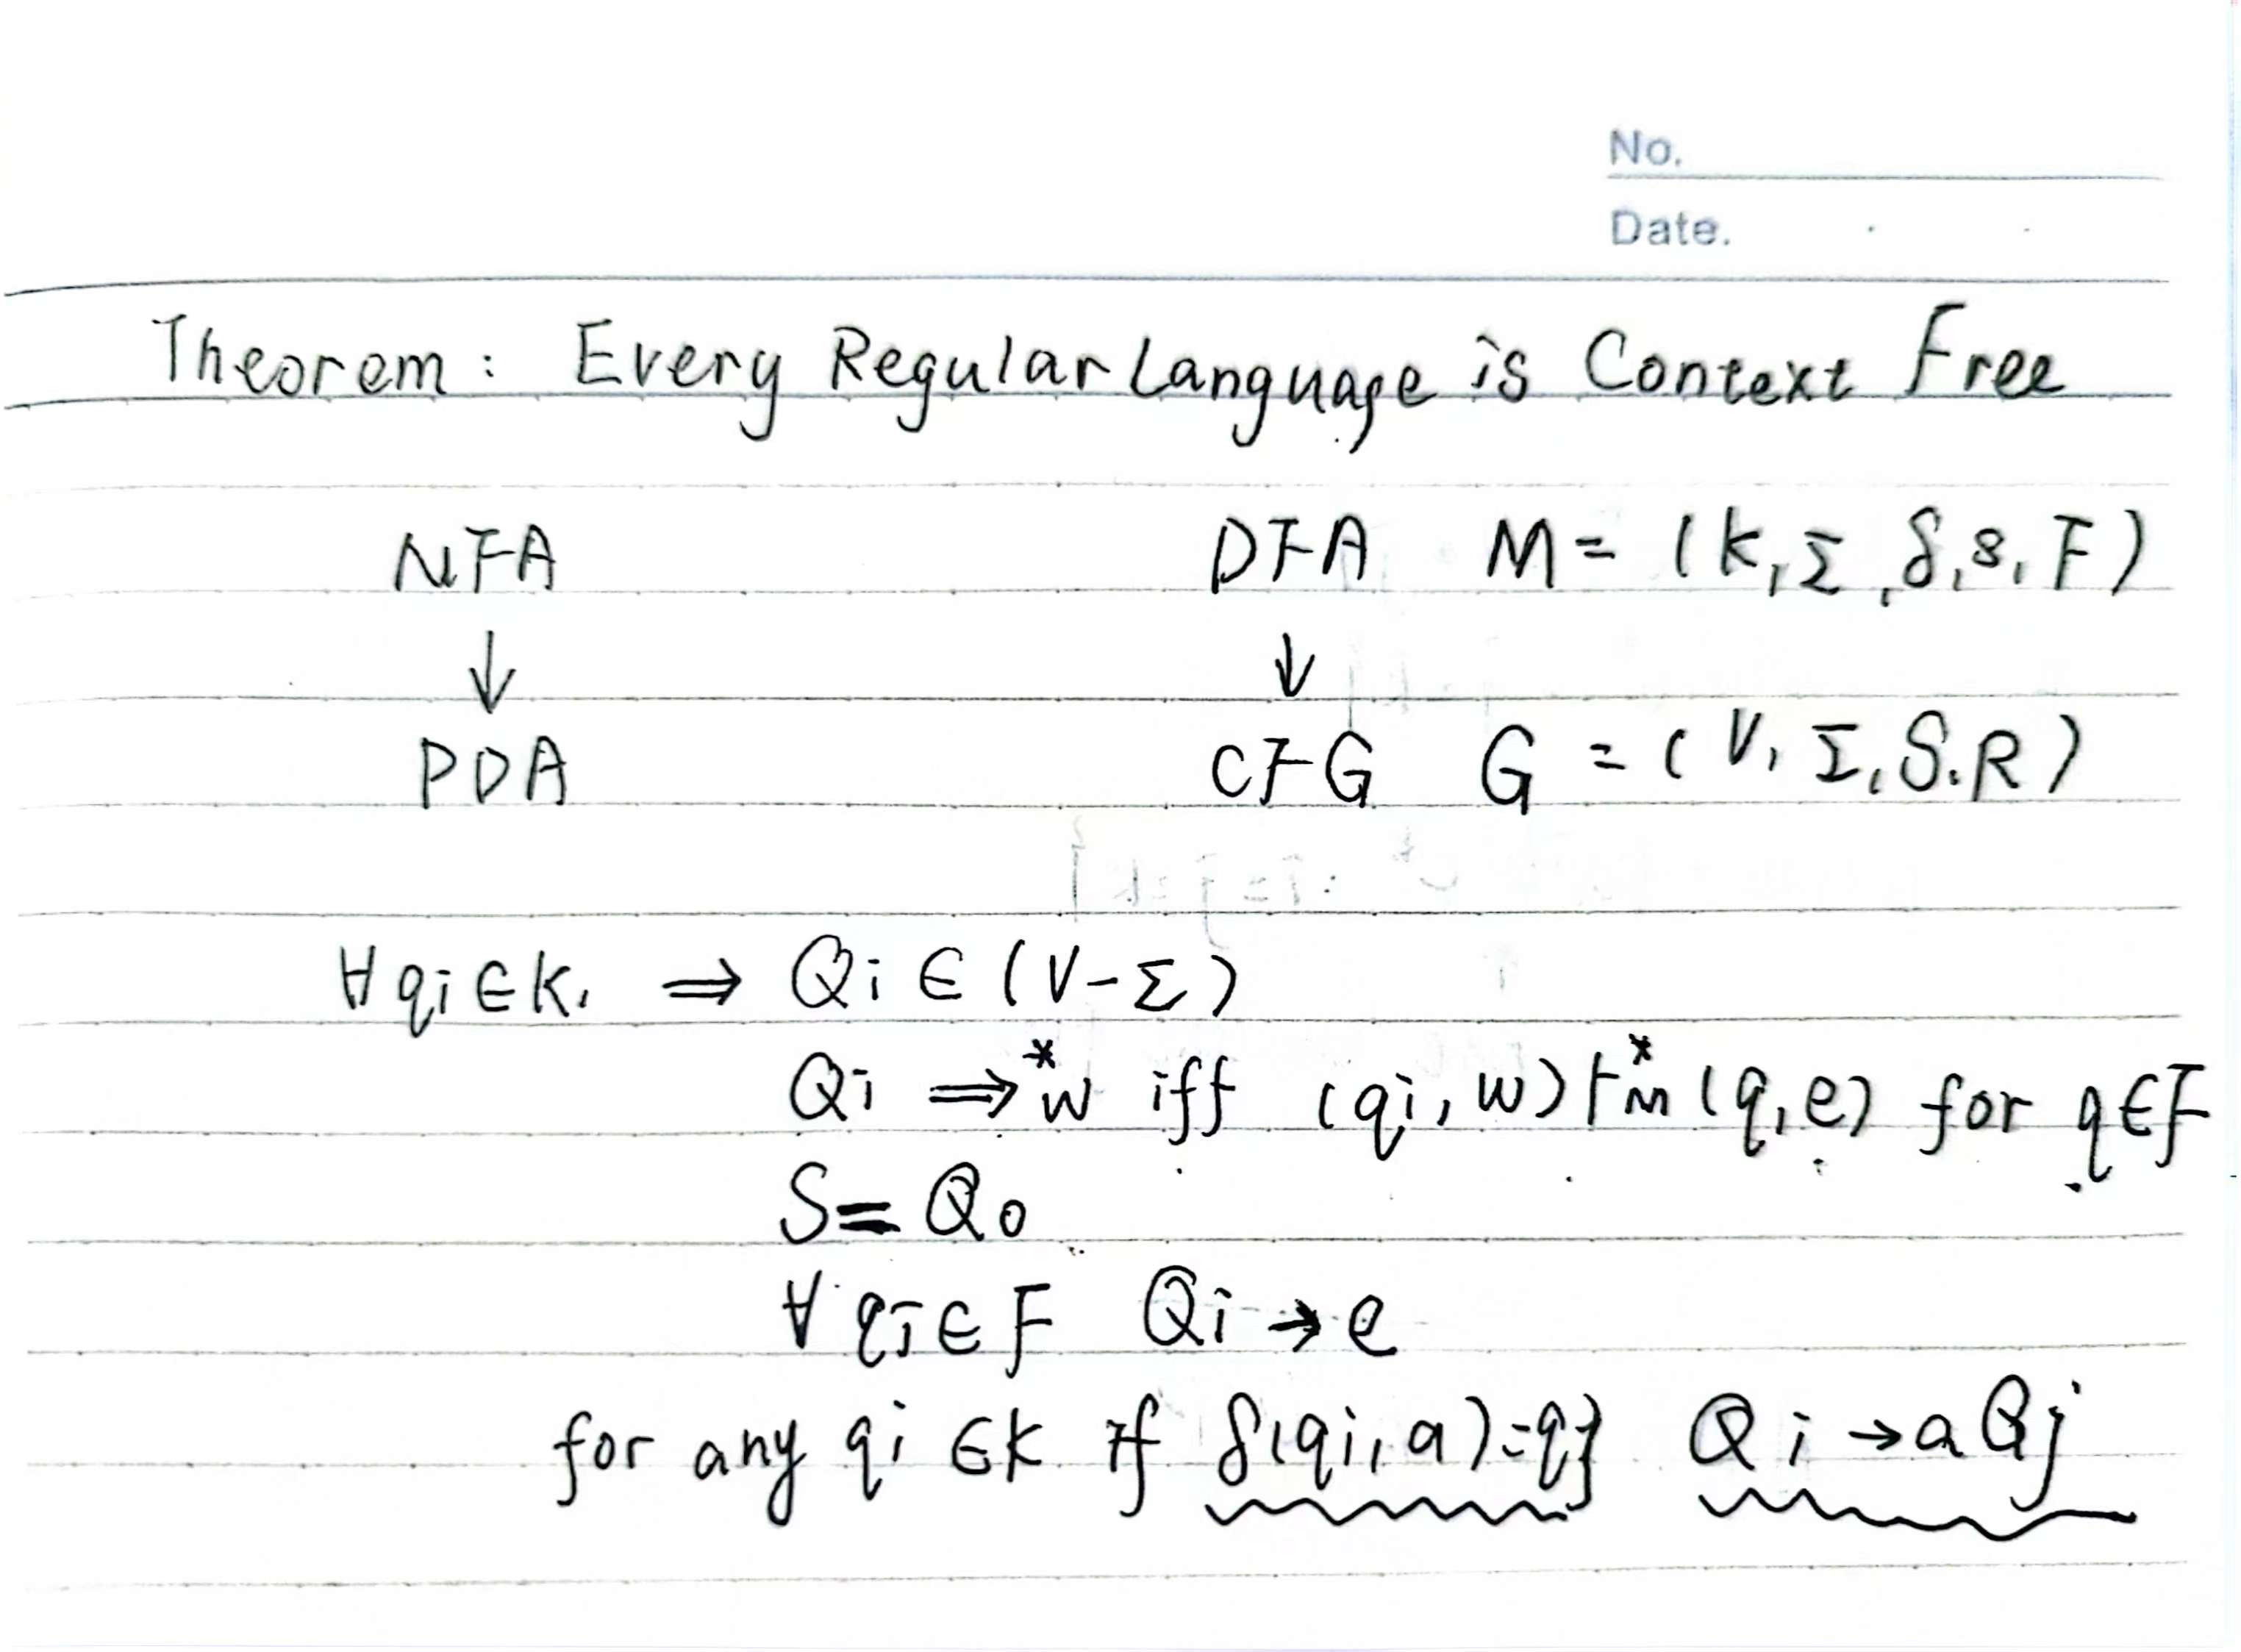 No.
Date.
Theorem: Every Regular Language is Context Free
NFA DFA M = (K, Σ, δ, s, F)
↓ ↓
PDA CFG G = (V, Σ, S, R)
∀ qi ∈ K, ⇒ Qi ∈ (V-Σ)
Qi ⇒* w iff (qi, w) ⊢*M (q, e) for q ∈ F
S = Q0
∀ qi ∈ F Qi → e
for any qi ∈ K if δ(qi, a) = qj Qi → a Qj